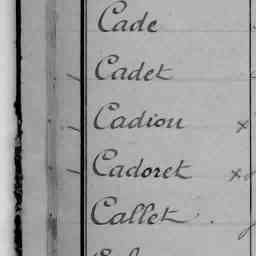 Cade
Cadet
Cadiou x
Cadoret x
Callet.